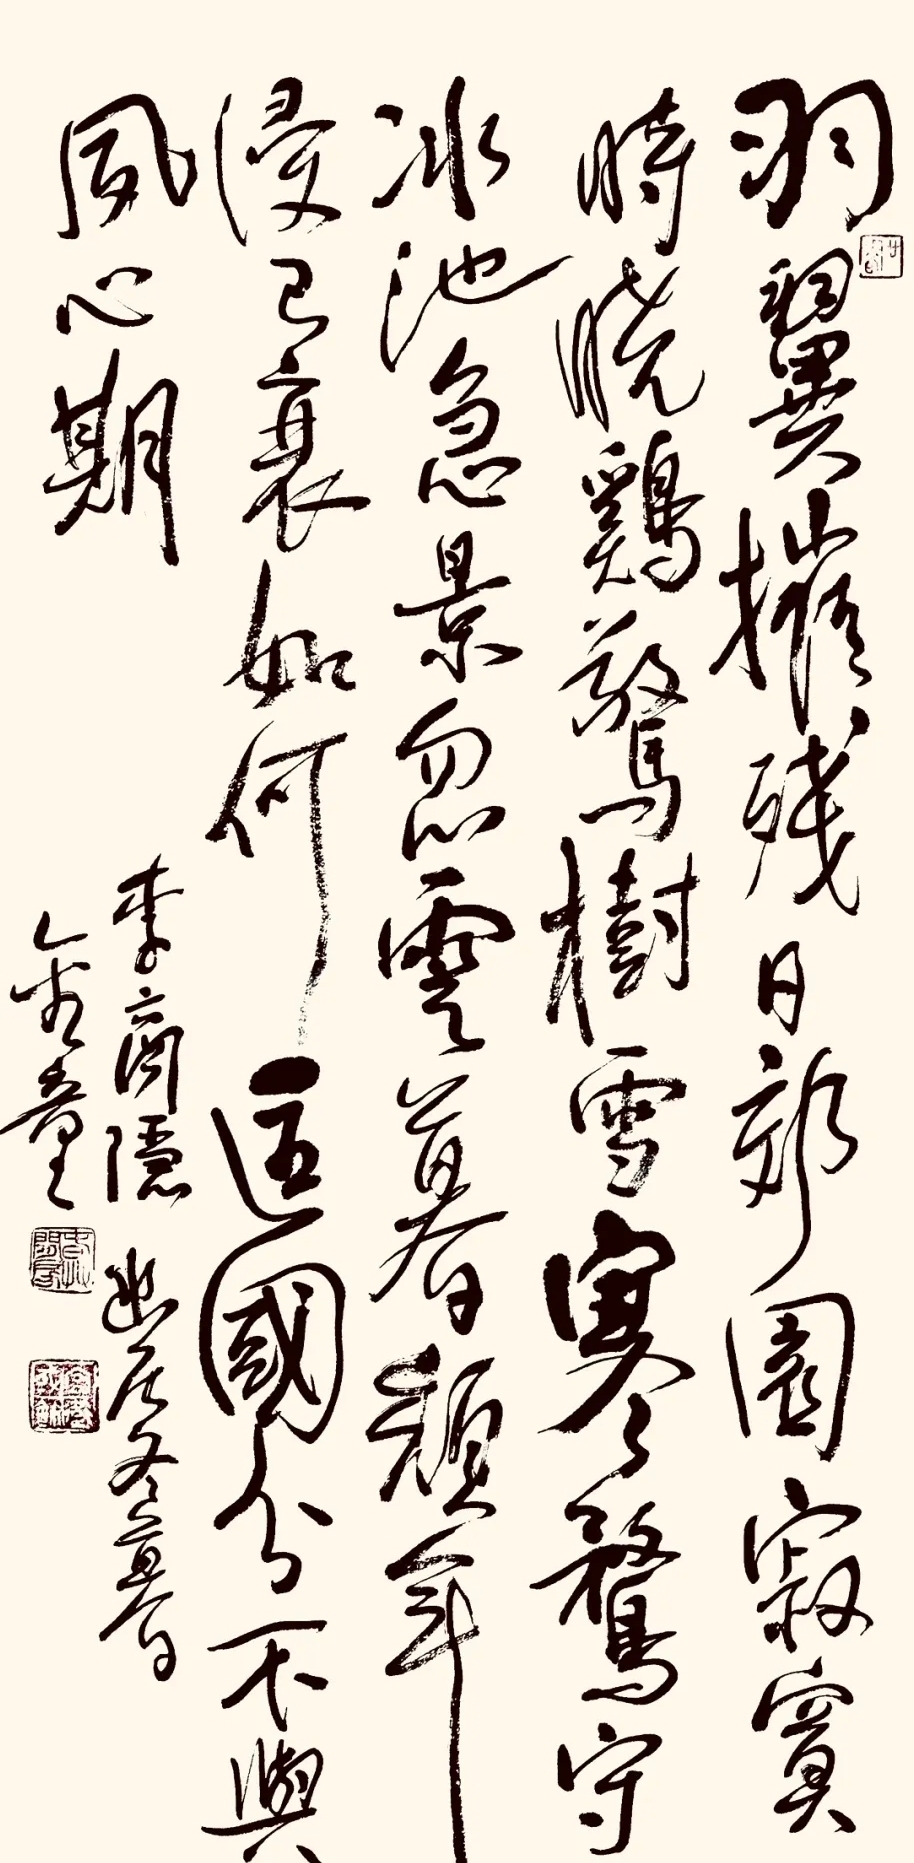 羽翼摧残日郊園寂寞
時晓鷄驚樹雪寒鶩守
冰池急景忽雲暮頹年
浸已衰如何匡國分不與
夙心期
李商隱 幽居冬暮